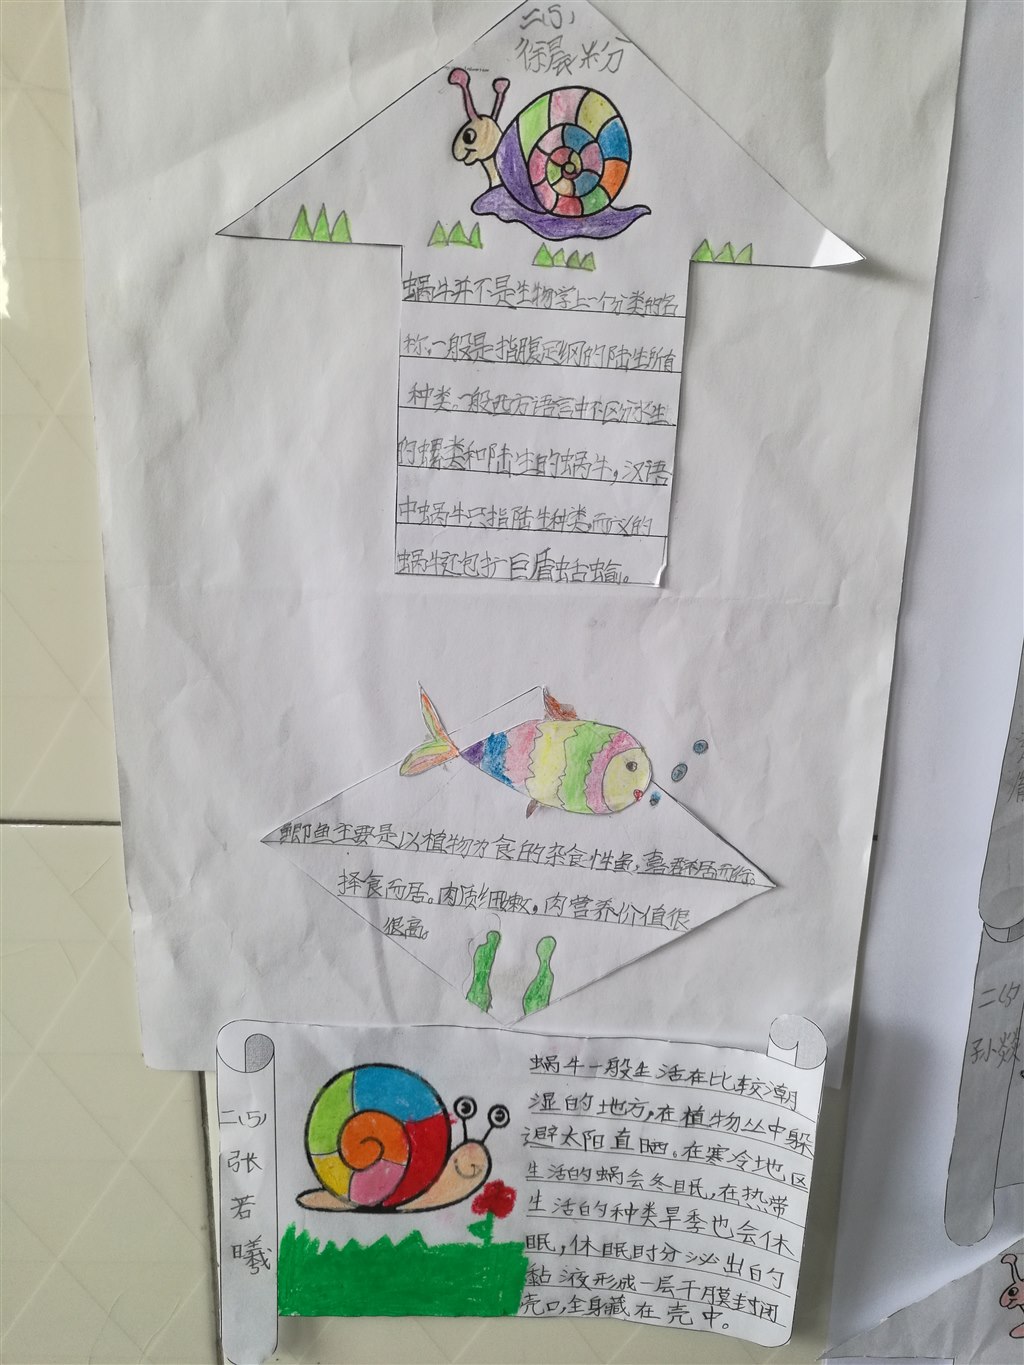 二(5)
徐晨粉
蜗牛并不是生物学上一个分类的名
称,一般是指腹足纲的陆生所有
种类。一般西方语言中不区分水生
的螺类和陆生的蜗牛,汉语
中蜗牛只指陆生种类,而义的
蜗牛还包扩巨盾蛞蝓。
鲫鱼主要是以植物为食的杂食性鱼,喜群居而行。
择食而居。肉质细嫩,肉营养价值很
很高。
二(5)
张
若
曦
蜗牛一般生活在比较潮
湿的地方,在植物丛中躲
避太阳直晒。在寒冷地区
生活的蜗会冬眠,在热带
生活的种类旱季也会休
眠,休眠时分泌出的
黏液形成一层干膜封闭
壳口,全身藏在壳中。
二(5)
孙燚